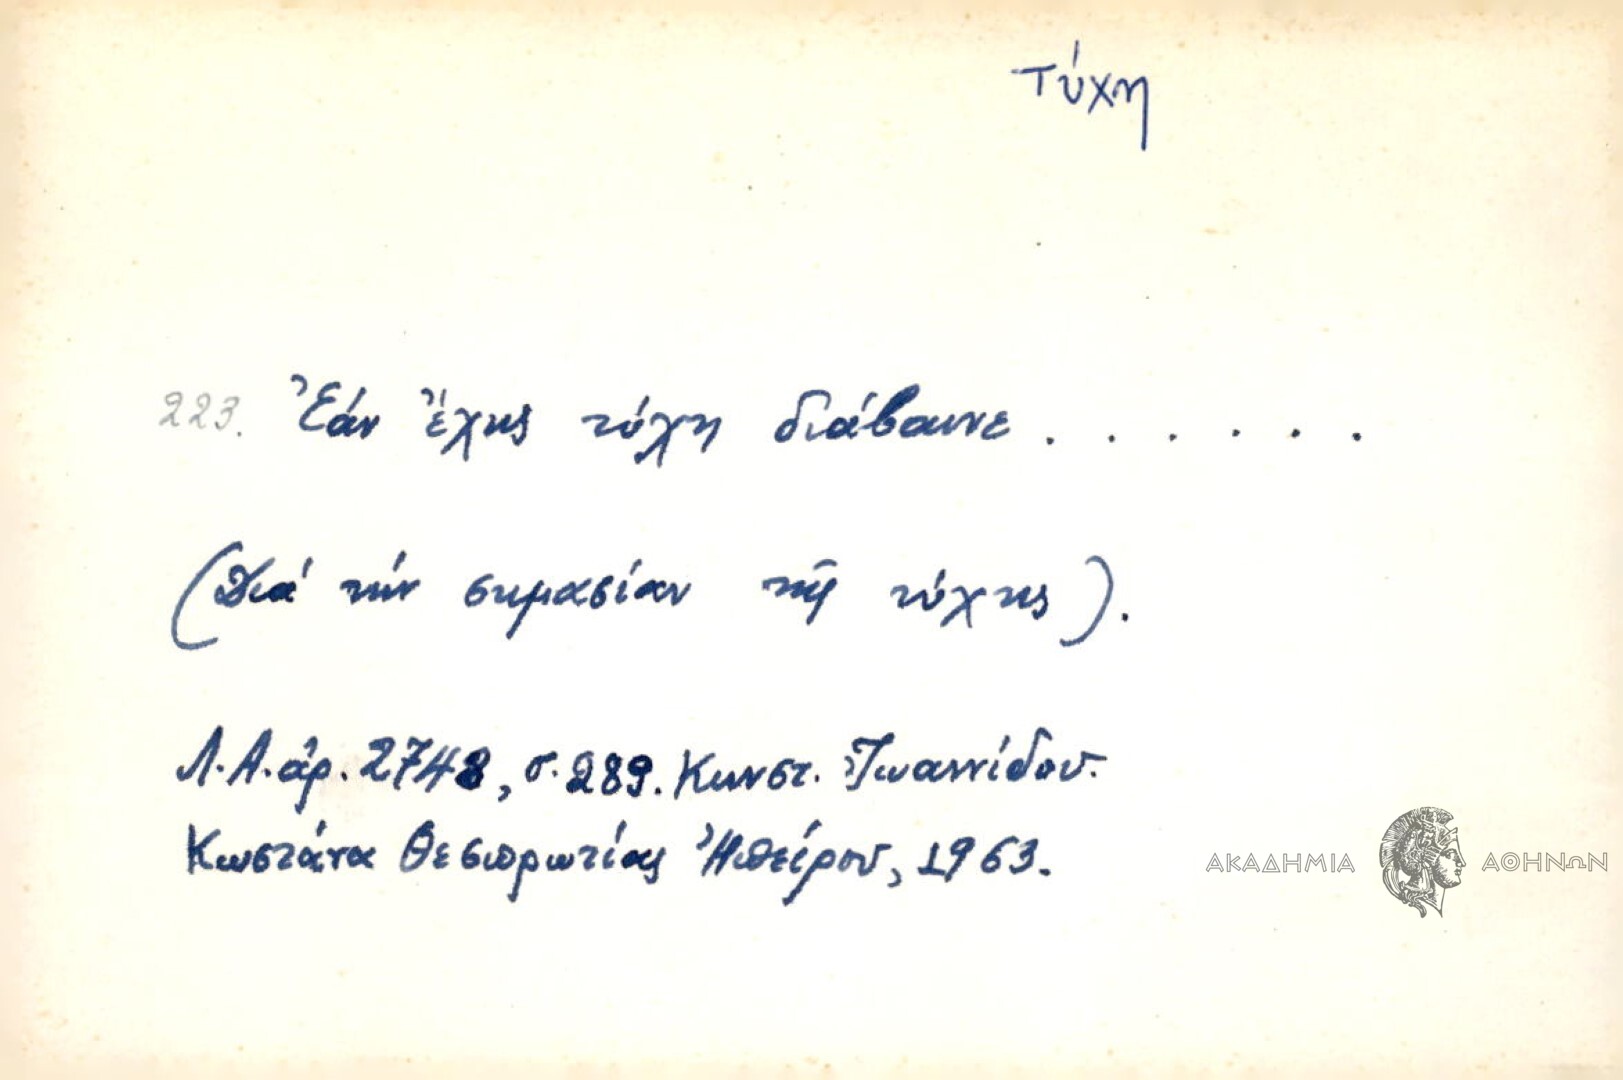 τύχη
223. Ἐάν ἔχης τύχη διάβαινε . . . . . .
(Διά τήν σημασίαν τῆς τύχης).
Λ.Α. ἀρ. 2748, σ. 289. Κωνστ. Ἰωαννίδου.
Κωστάνα Θεσπρωτίας Ἠπείρου, 1963.
ΑΚΑΔΗΜΙΑ ΑΘΗΝΩΝ